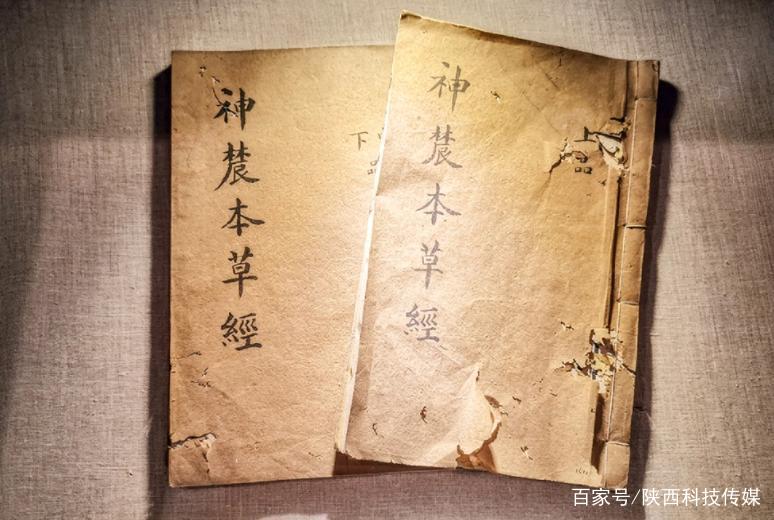 上品
神辳本草經
下
品
神辳本草經
百家号/陕西科技传媒